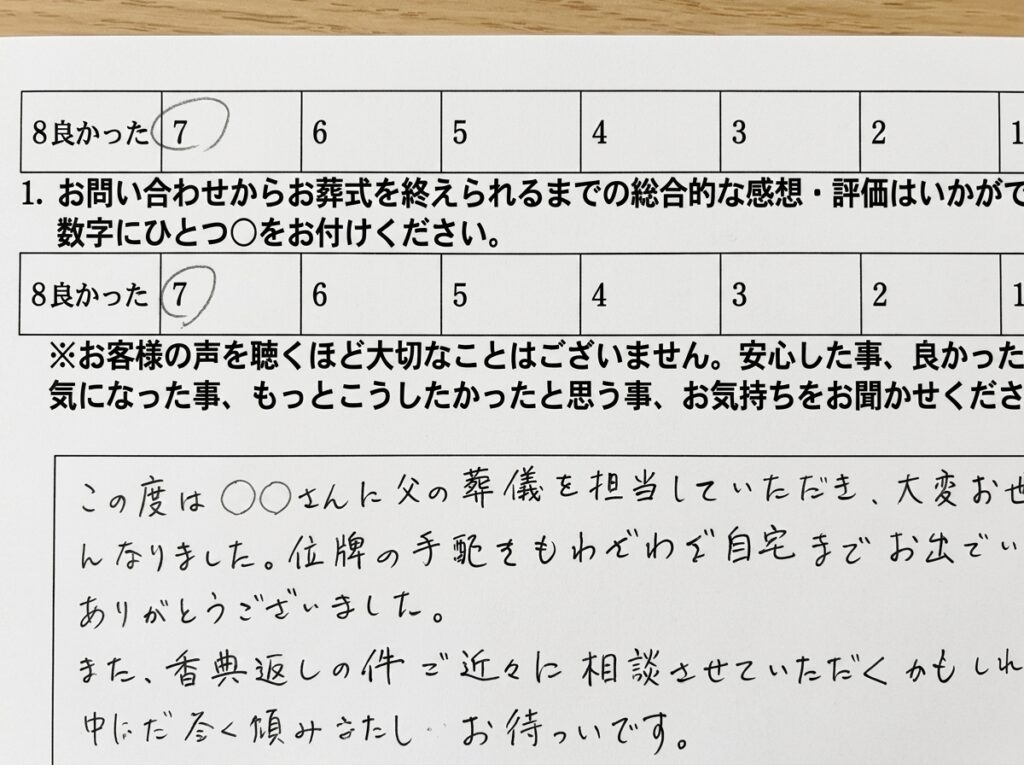 8良かった 7 6 5 4 3 2 1
1. お問い合わせからお葬式を終えられるまでの総合的な感想・評価はいかがで
数字にひとつ○をお付けください。
8良かった 7 6 5 4 3 2 1
※お客様の声を聴くほど大切なことはございません。安心した事、良かった
気になった事、もっとこうしたかったと思う事、お気持ちをお聞かせくださ
この度は○○さんに父の葬儀を担当していただき、大変お世
んなりました。位牌の手配をもわざわざ自宅までお出でい
ありがとうございました。
また、香典返しの件で近々に相談させていただくかもしれ
お待っいです。